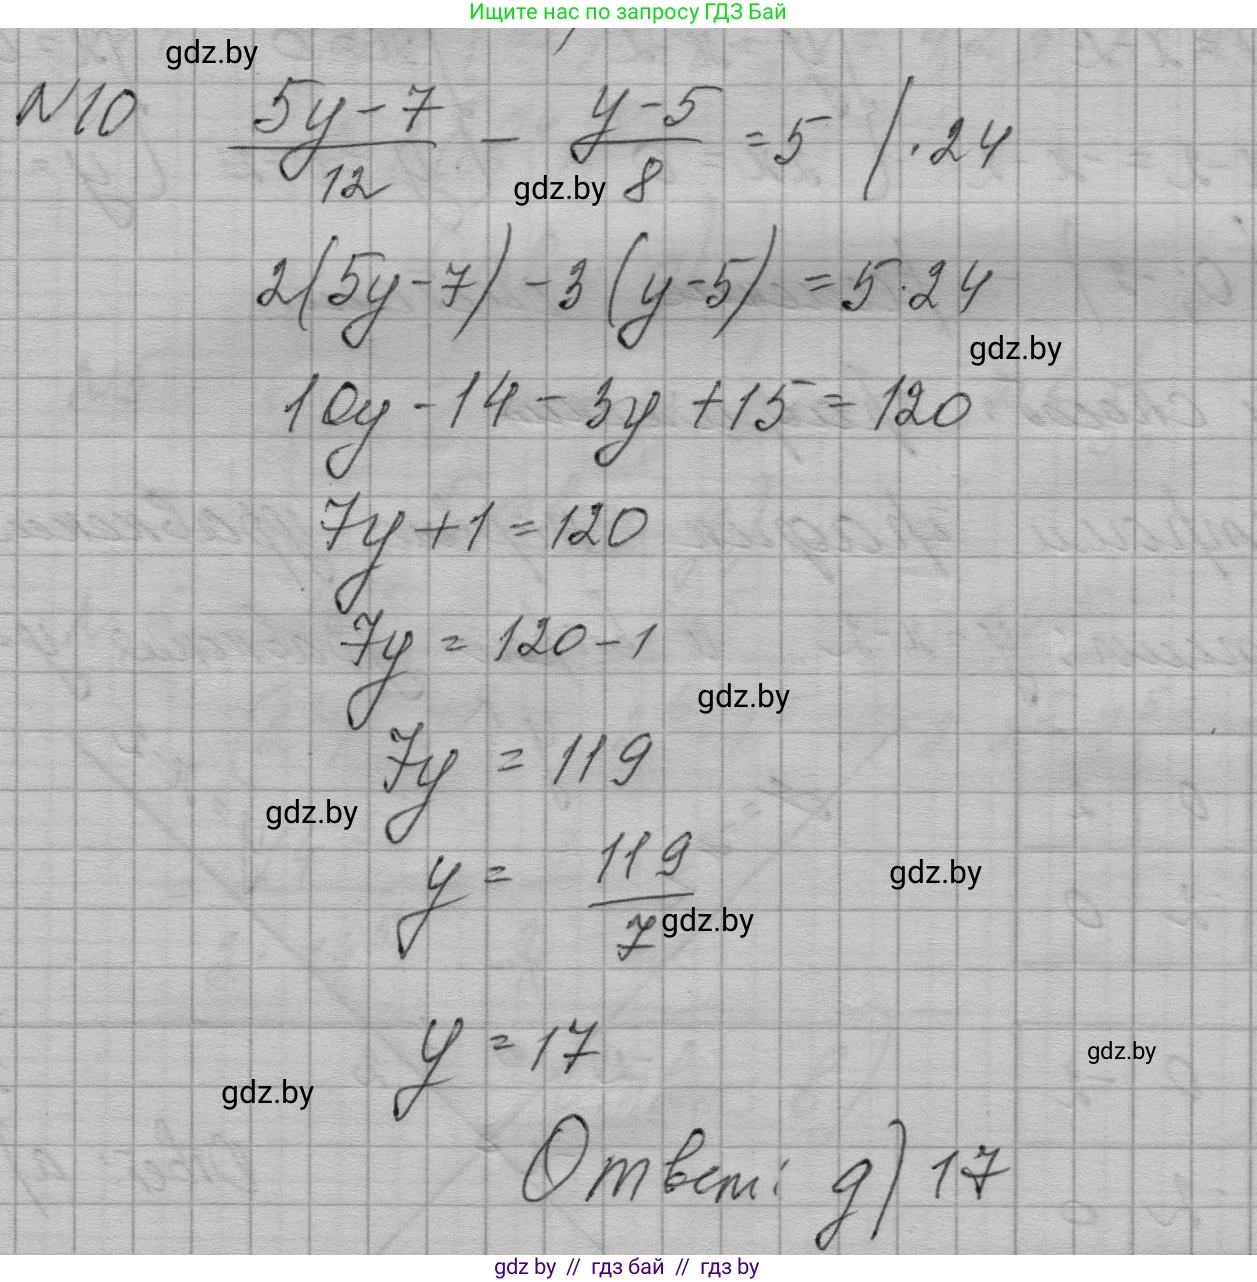 Ищите нас по запросу ГДЗ Бай
gdz.by
№10 (5y-7)/12 - (y-5)/8 = 5 /·24
gdz.by
2(5y-7)-3(y-5)=5·24
gdz.by
10y-14-3y+15=120
7y+1=120
7y=120-1
gdz.by
7y=119
gdz.by
y=119/7
gdz.by
gdz.by
y=17
gdz.by
gdz.by
Ответ: д) 17
gdz by // гдз бай // гдз by